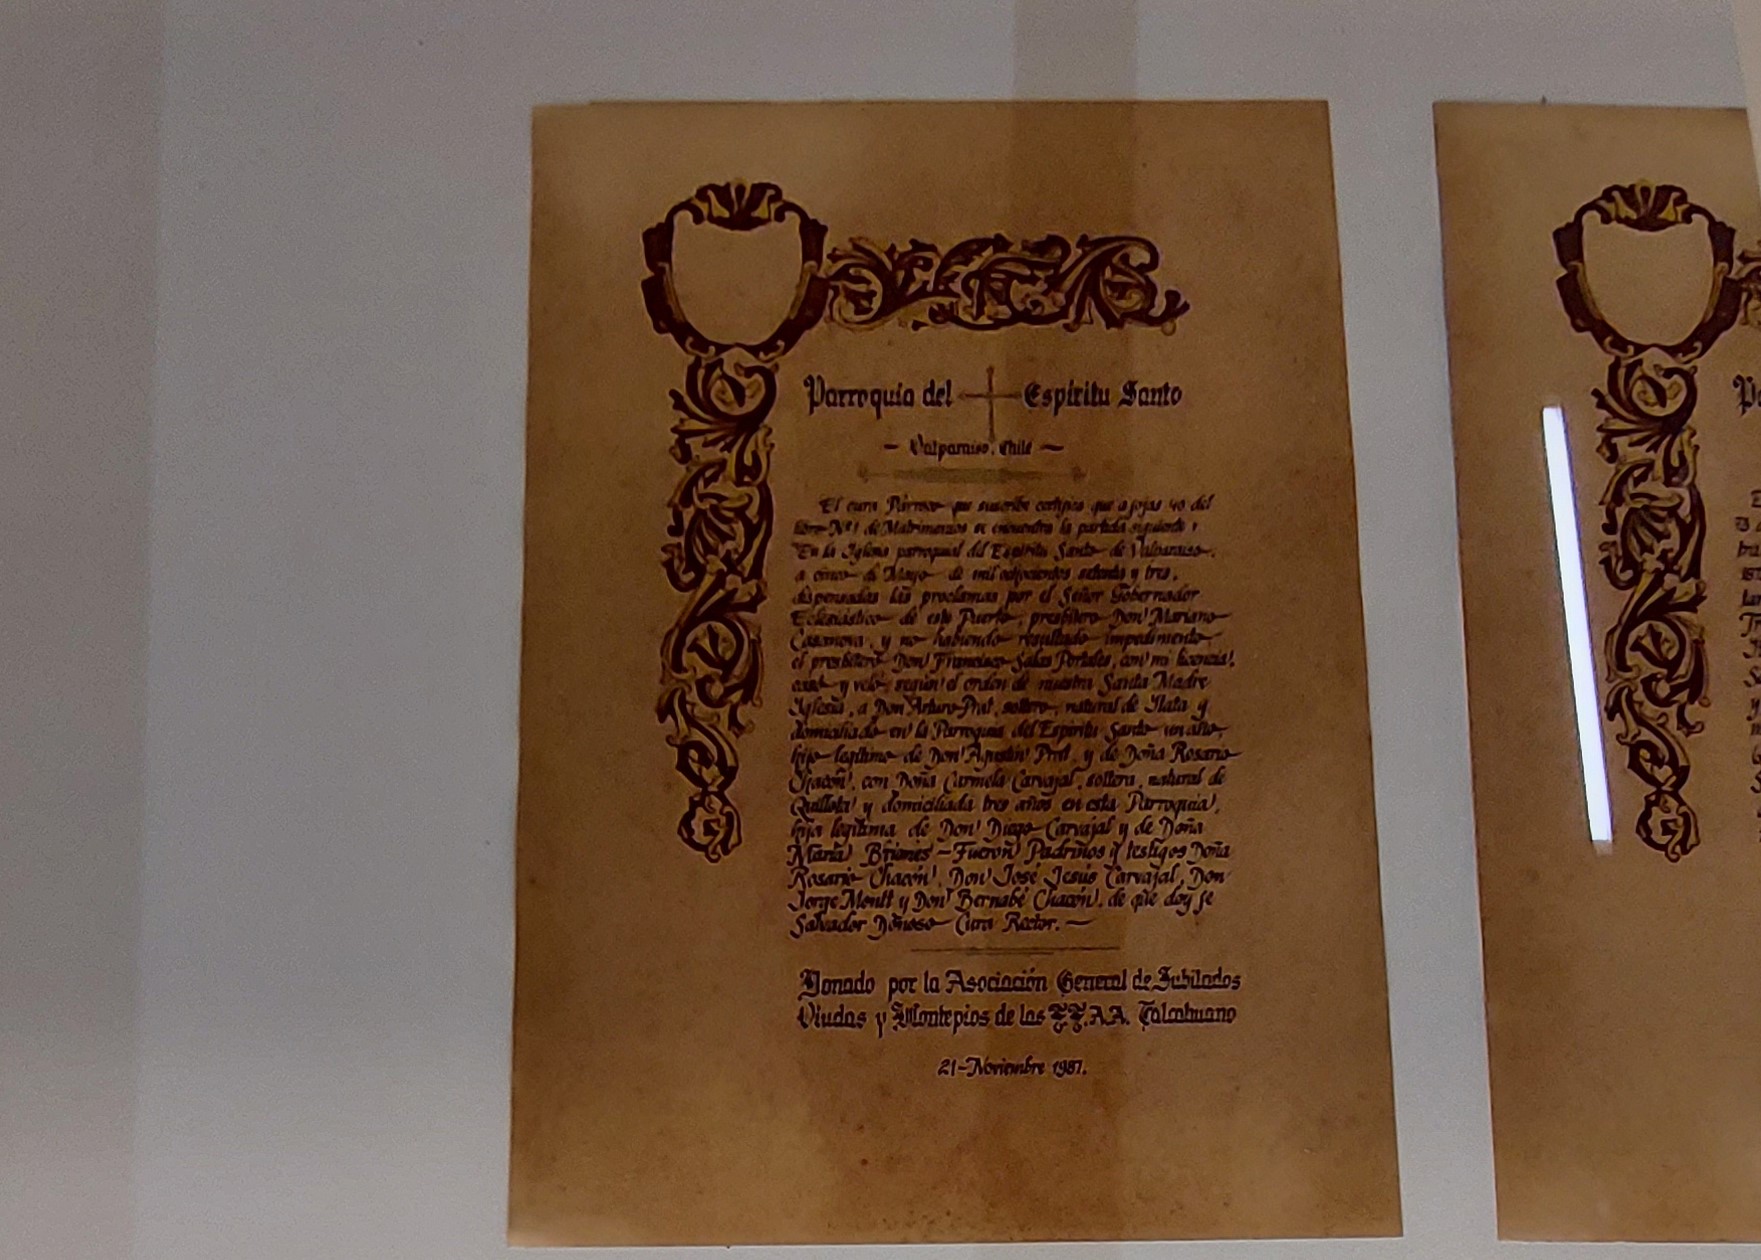 Parroquia del Espíritu Santo
— Valparaiso, Chile —
El cura Párroco que suscribe certifica que a fojas 40 del
libro Nº1 de Matrimonios se encuentra la partida siguiente :
En la Iglesia parroquial del Espíritu Santo de Valparaiso,
a cinco de Mayo de mil ochocientos setenta y tres,
dispensadas las proclamas por el Señor Gobernador
Eclesiástico de este Puerto, presbítero Don Mariano
Casanova, y no habiendo resultado impedimento
el presbítero Don Francisco Salas Portales, con mi licencia,
casó y veló, según el orden de nuestra Santa Madre
Iglesia, a Don Arturo Prat, soltero, natural de Itata y
domiciliado en la Parroquia del Espíritu Santo un año,
hijo legítimo de Don Agustín Prat, y de Doña Rosario
Chacón, con Doña Carmela Carvajal, soltera, natural de
Quillota y domiciliada tres años en esta Parroquia,
hija legítima de Don Diego Carvajal y de Doña
María Briones — Fueron Padrinos y testigos Doña
Rosario Chacón, Don José Jesús Carvajal, Don
Jorge Montt y Don Bernabé Chacón, de que doy fe
Salvador Donoso Cura Rector. —
Donado por la Asociación General de Jubilados
Viudas y Montepios de las FF.AA. Talcahuano
21-Noviembre 1987.